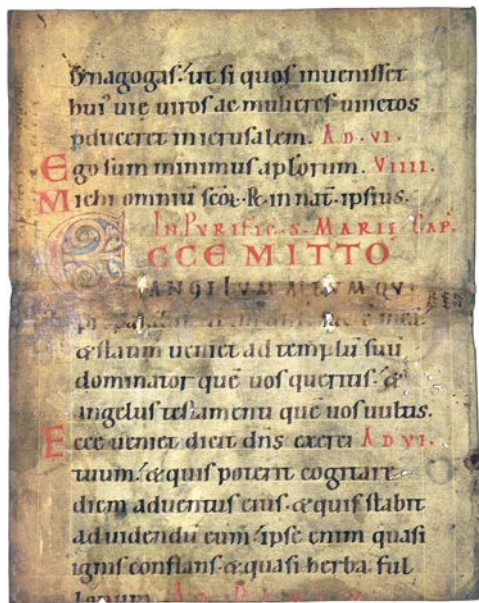 synagogas. ut si quos inuenisset
hui' uie uiros ac mulieres uinctos
pduceret in ierusalem. AD. VI.
Ego sum minimus aplorum. VIIII.
Michi omniū scōꝝ. R. in nat. ipsius.
IN PVRIFIC. S. MARIE. CAP.
ECCE MITTO
ANGELVM MEVM QVI
ante
& statim ueniet ad templū suū
dominator quē uos queritis. &
angelus testamenti quē uos uultis.
Ecce ueniet dicit dn̄s exerci AD VI.
tuum. & quis poterit cogitare
diem aduentus eius. & quis stabit
ad uidendū eum. ipse enim quasi
ignis conflans. & quasi herba ful
lonum.